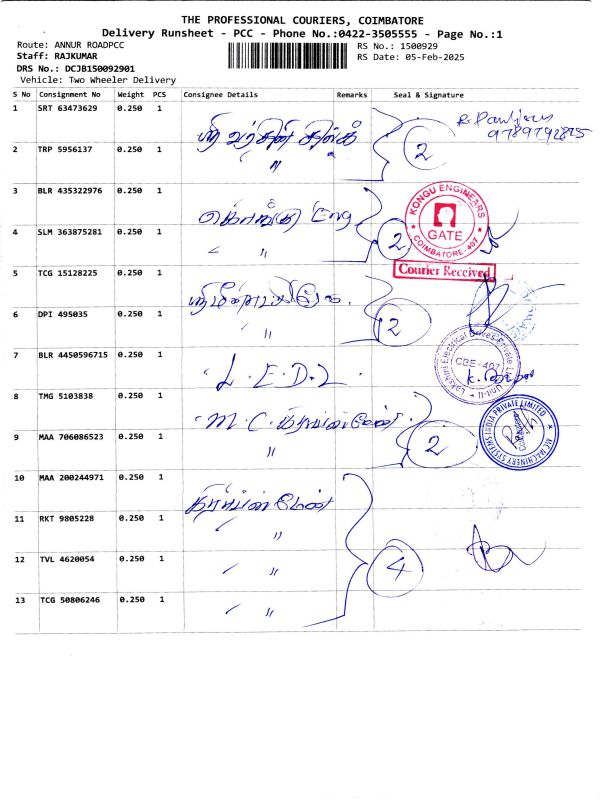 THE PROFESSIONAL COURIERS, COIMBATORE
Delivery Runsheet - PCC - Phone No.:0422-3505555 - Page No.:1
Route: ANNUR ROADPCC
RS No.: 1500929
Staff: RAJKUMAR
RS Date: 05-Feb-2025
DRS No.: DCJB150092901
Vehicle: Two Wheeler Delivery
S No Consignment No Weight PCS Consignee Details Remarks Seal & Signature
1 SRT 63473629 0.250 1
9789792875
2 TRP 5956137 0.250 1 " 2
3 BLR 435322976 0.250 1
KONGU ENGINEARS
GATE
COIMBATORE-407
4 SLM 363875281 0.250 1 " 2
Courier Received
5 TCG 15128225 0.250 1
6 DPI 495035 0.250 1 " 2
7 BLR 4450596715 0.250 1 L.E.D.L
Lakshmi Electrical Drives Private Limited
CBE-407
Unit-II
8 TMG 5103838 0.250 1 M.C.
MC MACHINERY SYSTEMS INDIA PRIVATE LIMITED
9 MAA 706086523 0.250 1 " 2
10 MAA 200244971 0.250 1
11 RKT 9805228 0.250 1 "
12 TVL 4620054 0.250 1 " 4
13 TCG 50806246 0.250 1 "